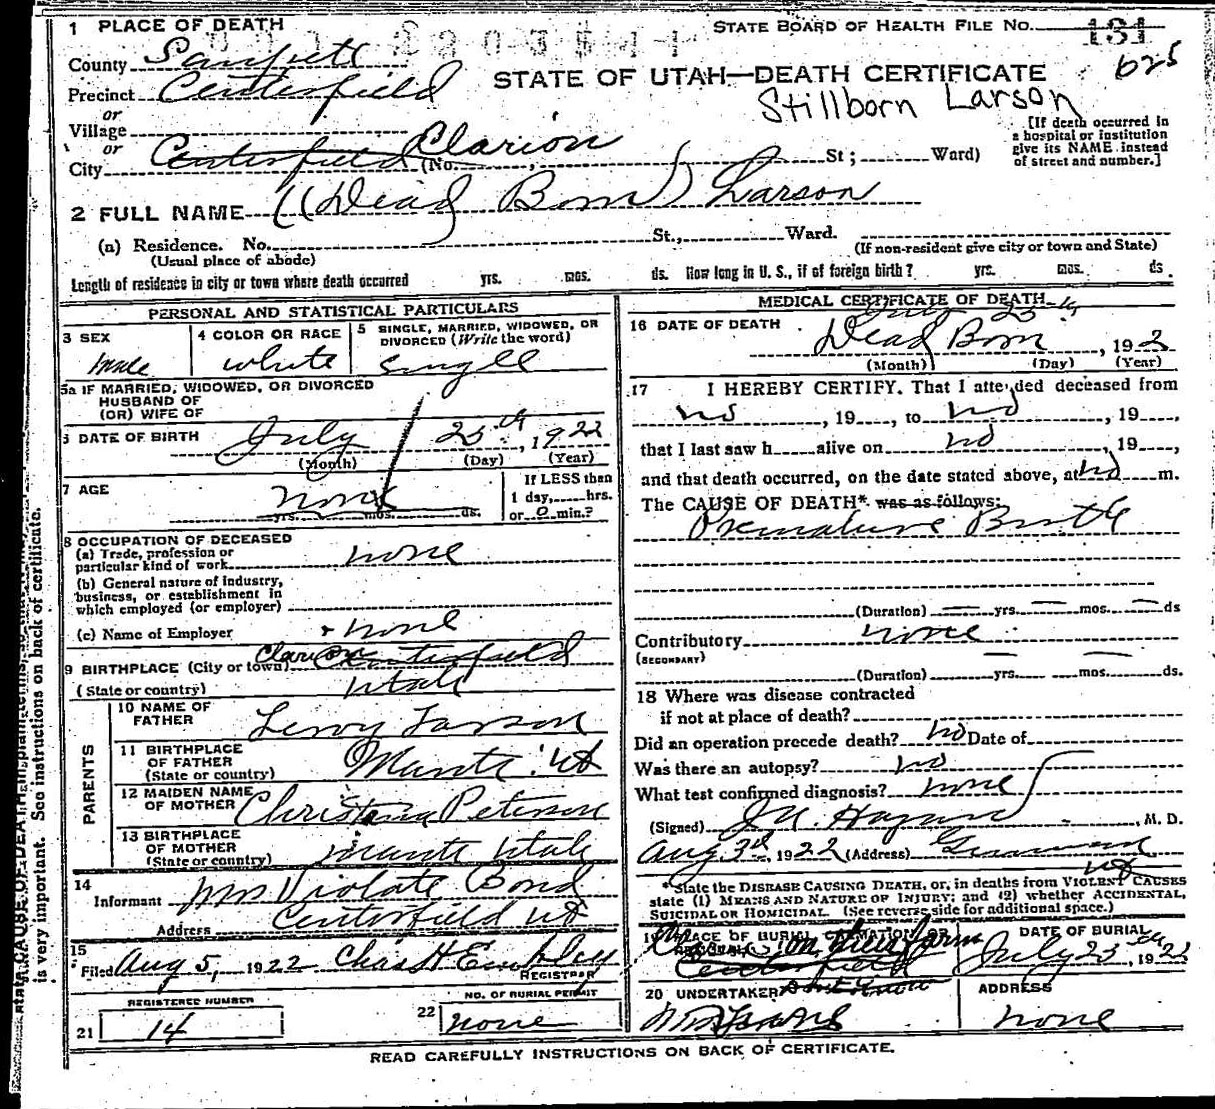 1 PLACE OF DEATH
STATE BOARD OF HEALTH FILE No. 131
625
County Sanpete
STATE OF UTAH—DEATH CERTIFICATE
Precinct Centerfield
Stillborn Larson
or
Village
or
City Centerfield Clarion (No. , St; Ward)
[If death occurred in
a hospital or institution
give its NAME instead
of street and number.]
2 FULL NAME ((Dead Born) Larson
(a) Residence. No. St., Ward.
(Usual place of abode)
(If non-resident give city or town and State)
Length of residence in city or town where death occurred yrs. mos. ds. How long in U. S., if of foreign birth? yrs. mos. ds.
PERSONAL AND STATISTICAL PARTICULARS
3 SEX
male
4 COLOR OR RACE
white
5 SINGLE, MARRIED, WIDOWED, OR
DIVORCED (Write the word)
Single
5a IF MARRIED, WIDOWED, OR DIVORCED
HUSBAND OF
(OR) WIFE OF
6 DATE OF BIRTH July 25th, 1922
(Month) (Day) (Year)
7 AGE
none
yrs. mos. ds.
If LESS than
1 day, hrs.
or 0 min.?
8 OCCUPATION OF DECEASED
(a) Trade, profession or
particular kind of work none
(b) General nature of industry,
business, or establishment in
which employed (or employer)
(c) Name of Employer none
9 BIRTHPLACE (City or town) Clarion Centerfield
(State or country) Utah
PARENTS
10 NAME OF
FATHER Leroy Larson
11 BIRTHPLACE
OF FATHER
(State or country) Manti Ut
12 MAIDEN NAME
OF MOTHER Christena Peterson
13 BIRTHPLACE
OF MOTHER
(State or country) Manti Utah
14
Informant Mrs Violate Bond
Address Centerfield Ut
15
Filed Aug 5, 1922 Chas H
REGISTRAR
REGISTERED NUMBER
21 14
NO. OF BURIAL PERMIT
22 none
MEDICAL CERTIFICATE OF DEATH
16 DATE OF DEATH July 25th
Dead Born, 1922
(Month) (Day) (Year)
17 I HEREBY CERTIFY. That I attended deceased from
no, 19 , to no, 19 ,
that I last saw h alive on no, 19 ,
and that death occurred, on the date stated above, at no m.
The CAUSE OF DEATH* was as follows:
Premature Birth
(Duration) yrs. mos. ds
Contributory none
(SECONDARY)
(Duration) yrs. mos. ds.
18 Where was disease contracted
if not at place of death?
Did an operation precede death? no Date of
Was there an autopsy? no
What test confirmed diagnosis? none
(Signed) J.N. Hagan, M. D.
Aug 3rd, 1922 (Address) Gunnison
Ut
*State the DISEASE CAUSING DEATH, or, in deaths from VIOLENT CAUSES
state (1) MEANS AND NATURE OF INJURY; and (2) whether ACCIDENTAL,
SUICIDAL OR HOMICIDAL. (See reverse side for additional space.)
19 PLACE OF BURIAL, CREMATION OR
on their farm
Centerfield
DATE OF BURIAL
July 25th, 1922
20 UNDERTAKER
ADDRESS
none
READ CAREFULLY INSTRUCTIONS ON BACK OF CERTIFICATE.
is very important. See instructions on back of certificate.